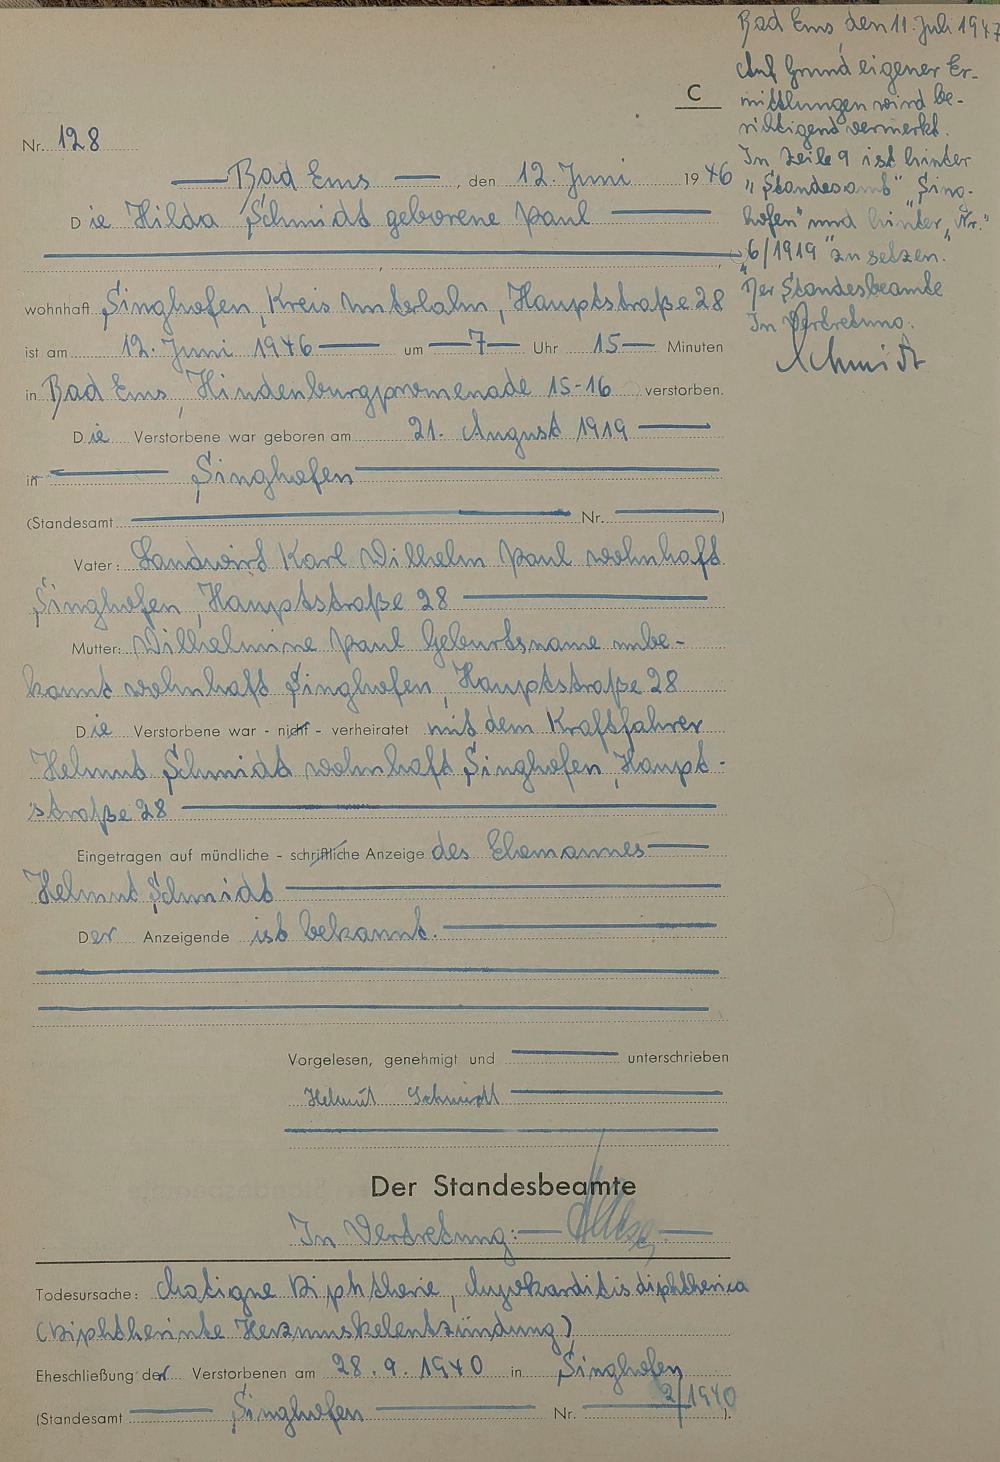 C
Nr. 128
Bad Ems, den 12. Juni 1946
Die Hilda Schmidt geborene Paul
wohnhaft Singhofen, Kreis Unterlahn, Hauptstraße 28
ist am 12. Juni 1946 um 7 Uhr 15 Minuten
in Bad Ems, Hindenburgpromenade 15-16 verstorben.
Die Verstorbene war geboren am 21. August 1919
in Singhofen
(Standesamt Nr. )
Vater: Landwirt Karl Wilhelm Paul wohnhaft
Singhofen, Hauptstraße 28
Mutter: Wilhelmine Paul Geburtsname unbe-
kannt wohnhaft Singhofen, Hauptstraße 28
Die Verstorbene war - nicht - verheiratet mit dem Kraftfahrer
Helmut Schmidt wohnhaft Singhofen, Haupt-
straße 28
Eingetragen auf mündliche - schriftliche Anzeige des Ehemannes
Helmut Schmidt
Der Anzeigende ist bekannt.
Vorgelesen, genehmigt und unterschrieben
Helmut Schmidt
Der Standesbeamte
In Vertretung:
Todesursache: Maligne Diphtherie, Myokarditis diphtherica
(Diphtherinte Herzmuskelentzündung)
Eheschließung der Verstorbenen am 28.9.1940 in Singhofen
(Standesamt Singhofen Nr. 2/1940).
Bad Ems, den 11. Juli 1947
Auf Grund eigener Er-
mittlungen wird be-
richtigend vermerkt.
In Zeile 9 ist hinter
"Standesamt" "Sing-
hofen" und hinter "Nr."
"6/1919" zu setzen.
Der Standesbeamte
In Vertretung.
Schmidt